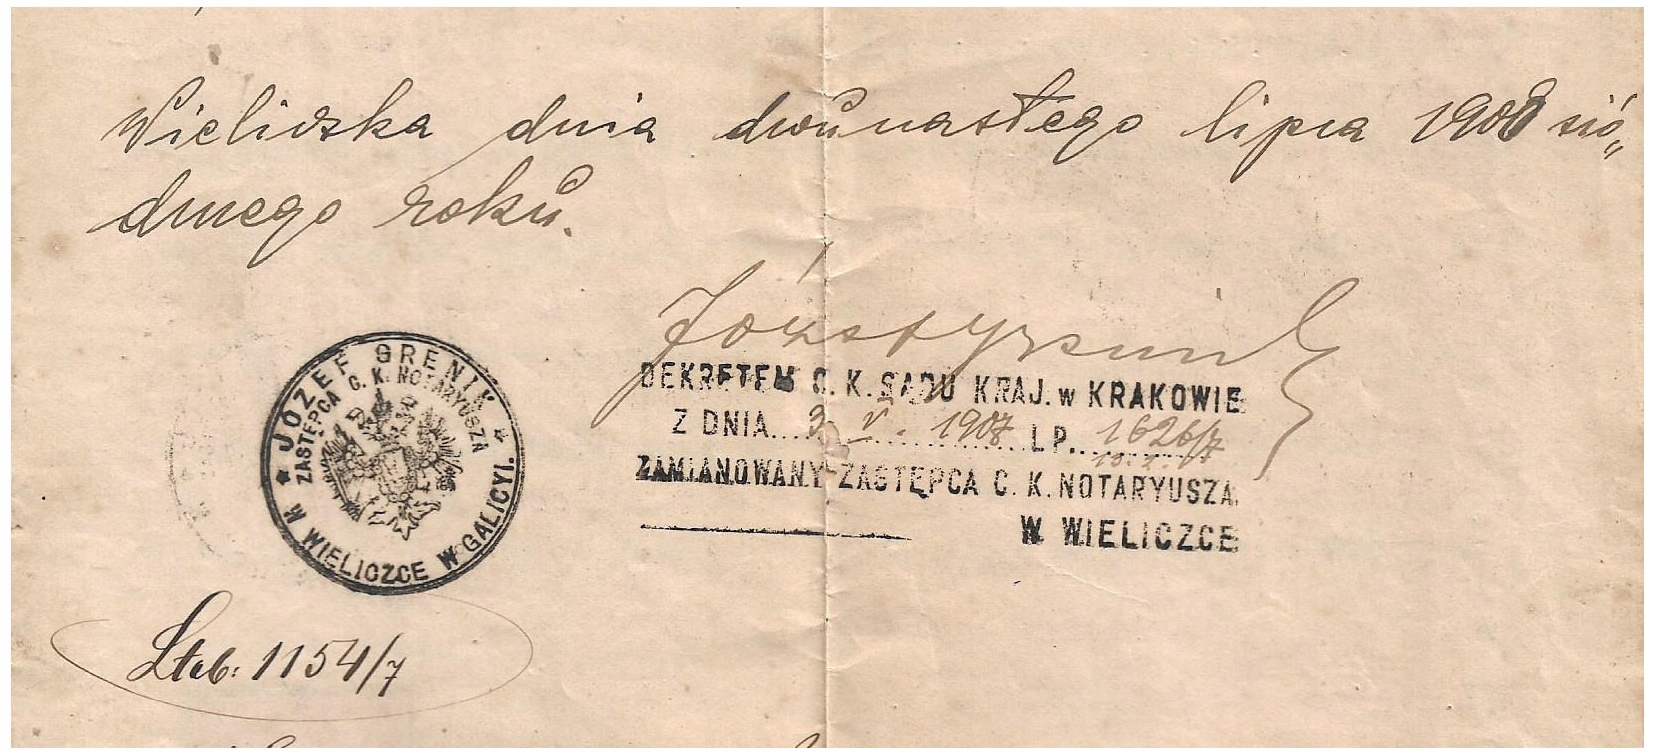 Wieliczka dnia dwunastego lipca 1908 sió„
dmego roku.
DEKRETEM C. K. SĄDU KRAJ. w KRAKOWIE
Z DNIA... 3 V. 1907 LP. 1626/7
ZAMIANOWANY ZASTĘPCA C. K. NOTARYUSZA
W WIELICZCE
JÓZEF GRENIK
ZASTĘPCA C. K. NOTARYUSZA
W WIELICZCE W GALICYI.
Lteb: 1154/7